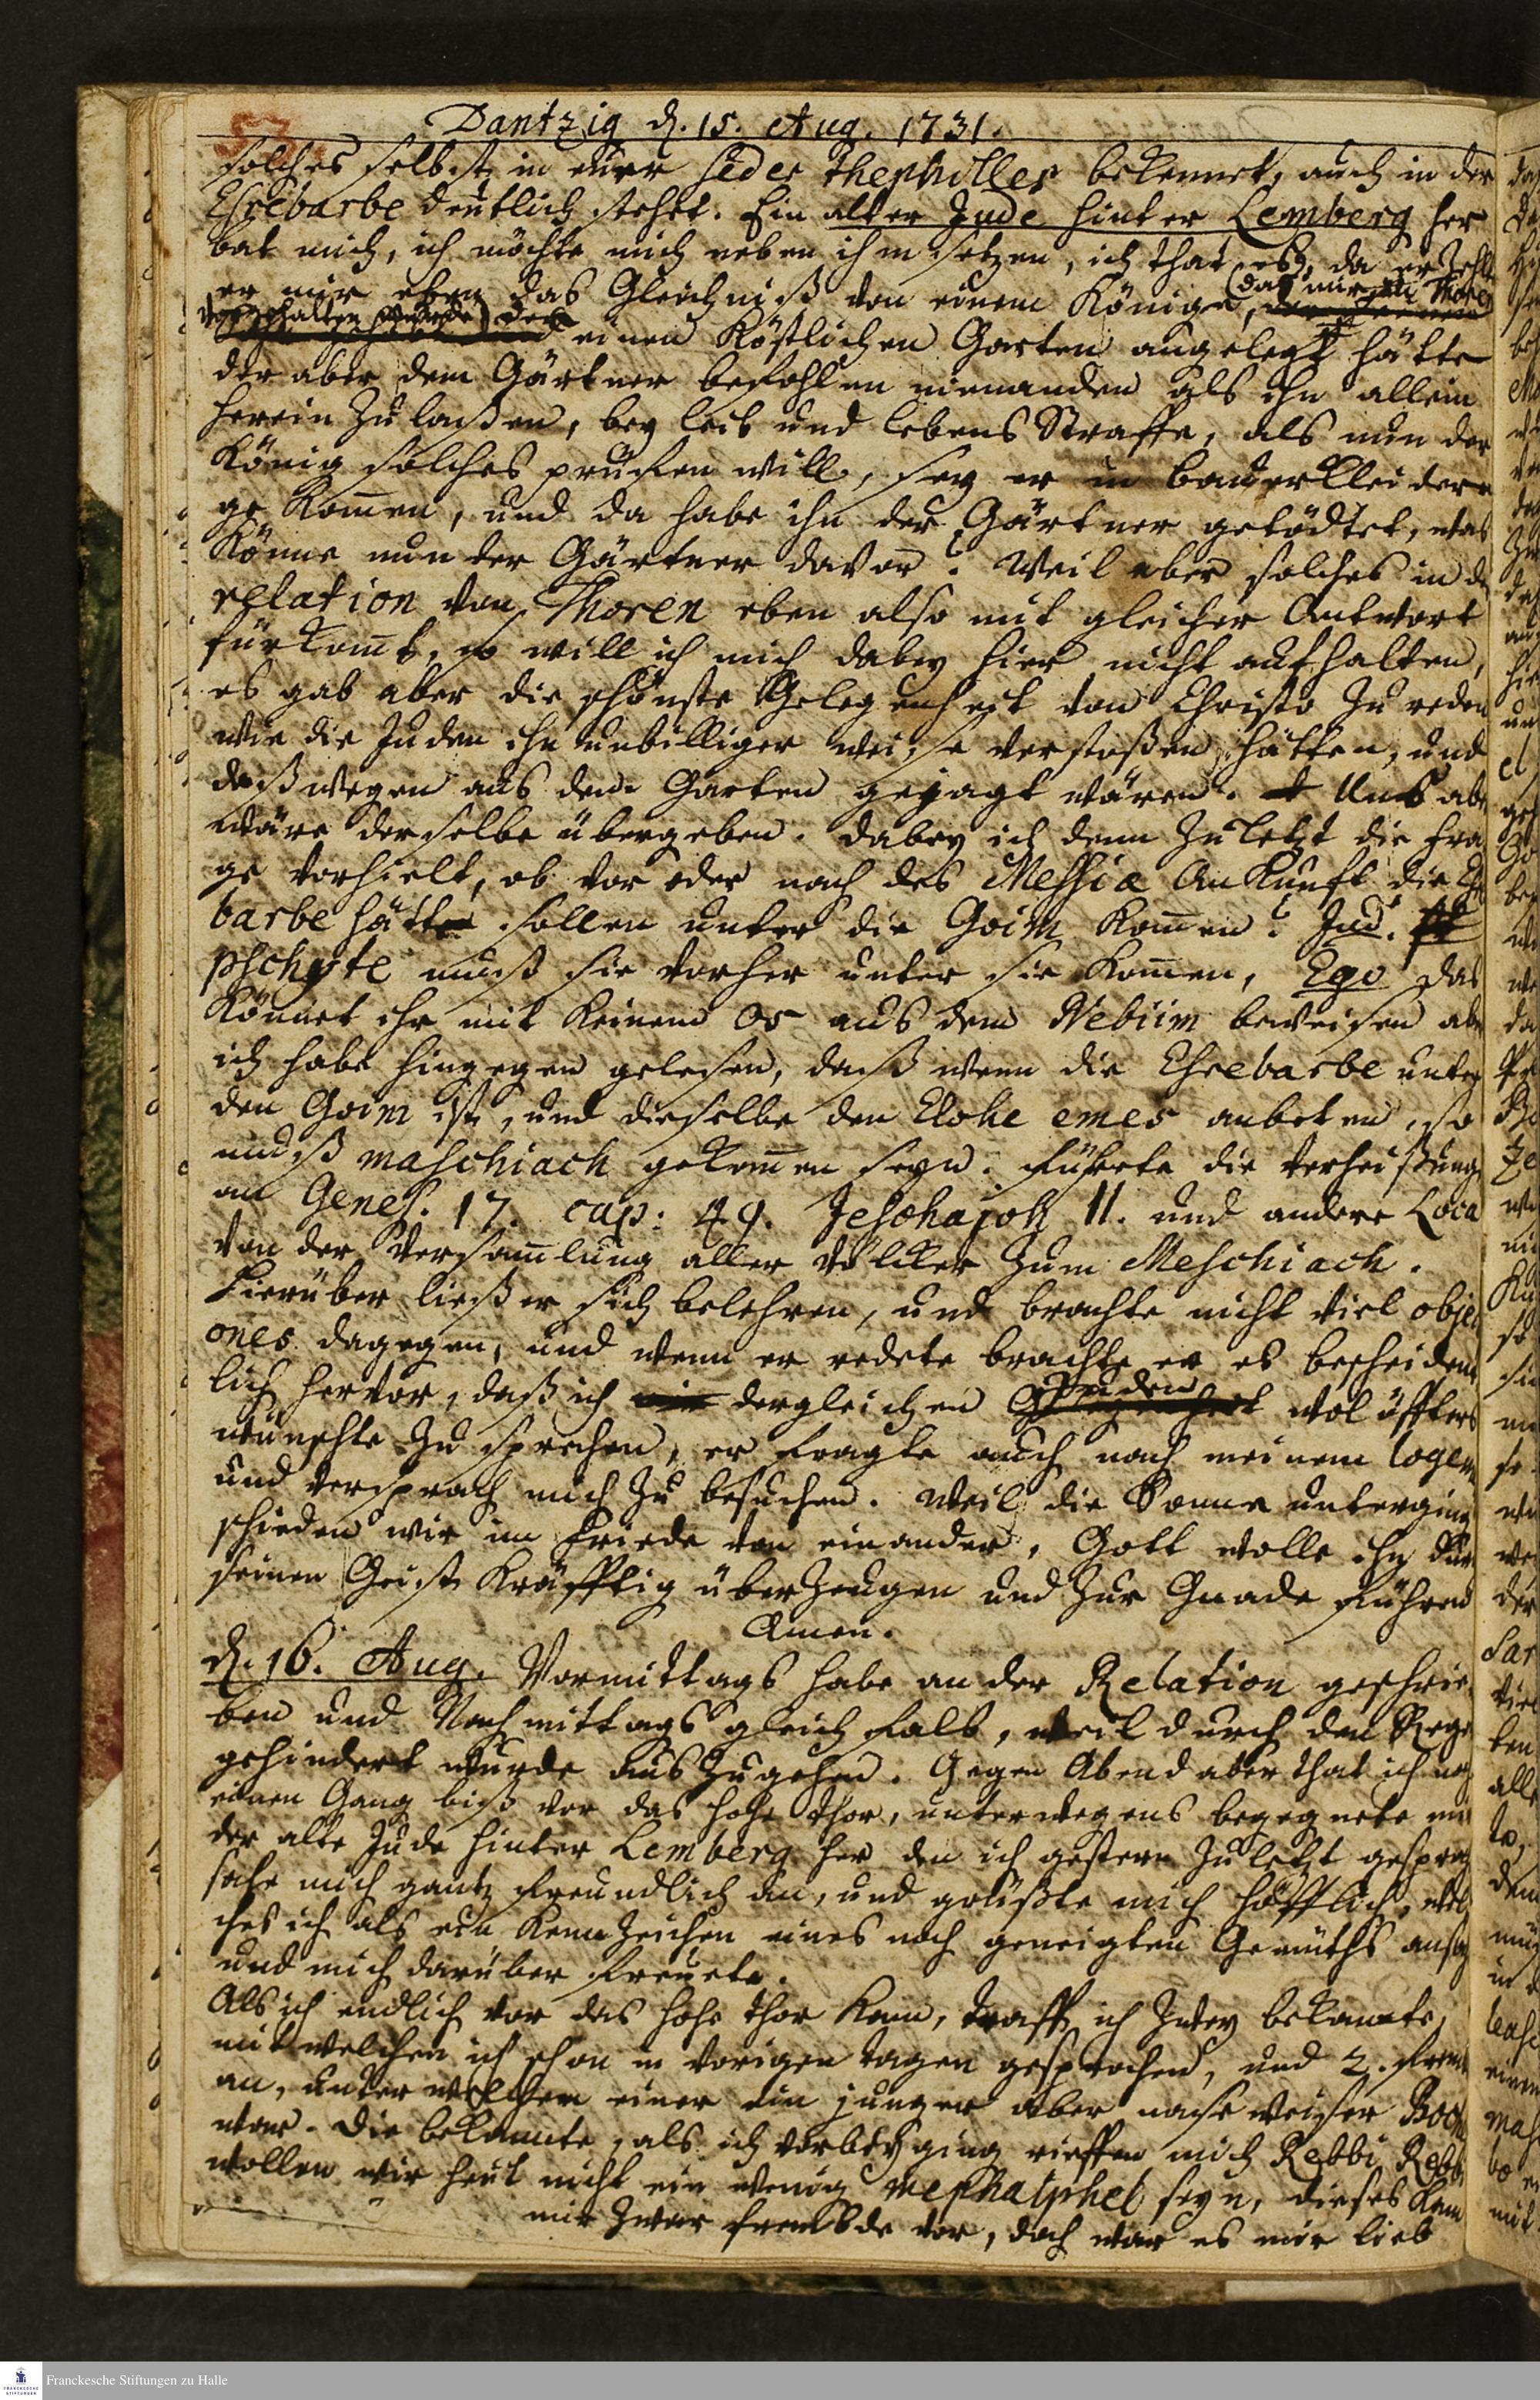 Dantzig d. 15. Aug. 1731.
solches selbst in eurer seder thephilles bekennet, auch in der
Chrebarbe deutlich stehet. Ein alter Jude hinter Lemberg her
bat mich, ich möchte mich neben ihm setzen, ich that es, da erzehlte
er mir eben das Gleichniß von einem Könige, (das mir zu Thoren
vorgehalten wurde) der einen Köstlichen Garten angelegt hätte
der aber dem Gärtner befohlen niemanden als ihn allein
herein zu laßen, bey leib und lebens Straffe, als nun der
König solches prüfen will, sey er in bauerkleidern
gekom̄en, und da habe ihn der Gärtner getödtet, was
könne nun der Gärtner davor? Weil aber solches in der
relation von Thoren eben also mit gleicher Antwort
fürkom̄t, so will ich mich dabey hier nicht aufhalten,
es gab aber die schönste Gelegenheit von Christo zu reden
wie die Juden ihn unbilliger weise verstoßen hätten, und
deßwegen aus dem Garten gejagt wären. Uns aber
wäre derselbe übergeben. Dabey ich denn zuletzt die Fra
ge vorhielt, ob vor oder nach des Messiæ Ankunft die Chre
barbe hätte sollen unter die Goim kom̄en? Jud.
pschyte muß sie vorher unter sie kom̄en, Ego das
könnet ihr mit keinem Os aus dem Nebiim beweisen aber
ich habe hingegen gelesen, daß wenn die Chrebarbe unter
den Goim ist, und dieselbe den Elohe emes anbeten, so
muß maschiach gekom̄en seyn. Führete die Verheißung
an Genes. 17. cap: 49. Jeschajoh 11. und andere Loca
von der Versam̄lung aller Völcker zum Meschiach.
Hierüber ließ er sich belehren, und brachte nicht viel objecti
ones dagegen, und wenn er redete brachte er es bescheident
lich hervor, daß ich dergleichen Juden wol öffters
wünschte zu sprechen, er fragte auch nach meinem logement
und versprach mich zu besuchen. Weil die Sonne unterging
schieden wir im Friede von einander, Gott wolle ihn durch
seinen Geist Kräfftig überzeugen und zur Gnade führen
Amen.
d. 16. Aug. Vormittags habe an der Relation geschrie
ben und Nachmittags gleichfals, weil durch den Regen
gehindert wurde auszugehen. Gegen Abend aber that ich noch
einen Gang biß vor das hohe Thor, unterwegens begegnete mir
der alte Jude hinter Lemberg her den ich gestern zuletzt gesprochen
sahe mich gantz freundlich an, und grüßte mich höfflich, wel
ches ich als ein Kennzeichen eines noch geneigten Gemüths ansahe
und mich darüber freuete.
Als ich endlich vor das hohe Thor kam, traff ich zwey bekannte,
mit welchen ich schon in vorigen Tagen gesprochen, und 2. fremde
an, unter welchen einer ein junger aber naseweiser
war. Die bekannte, als ich vorbey ging rieffen mich Rebbi, Rebbi
wollen wir heut nicht ein wenig mephalphel seyn, dieses kam
mir zwar frembde vor, doch war es mir lieb
Franckesche Stiftungen zu Halle